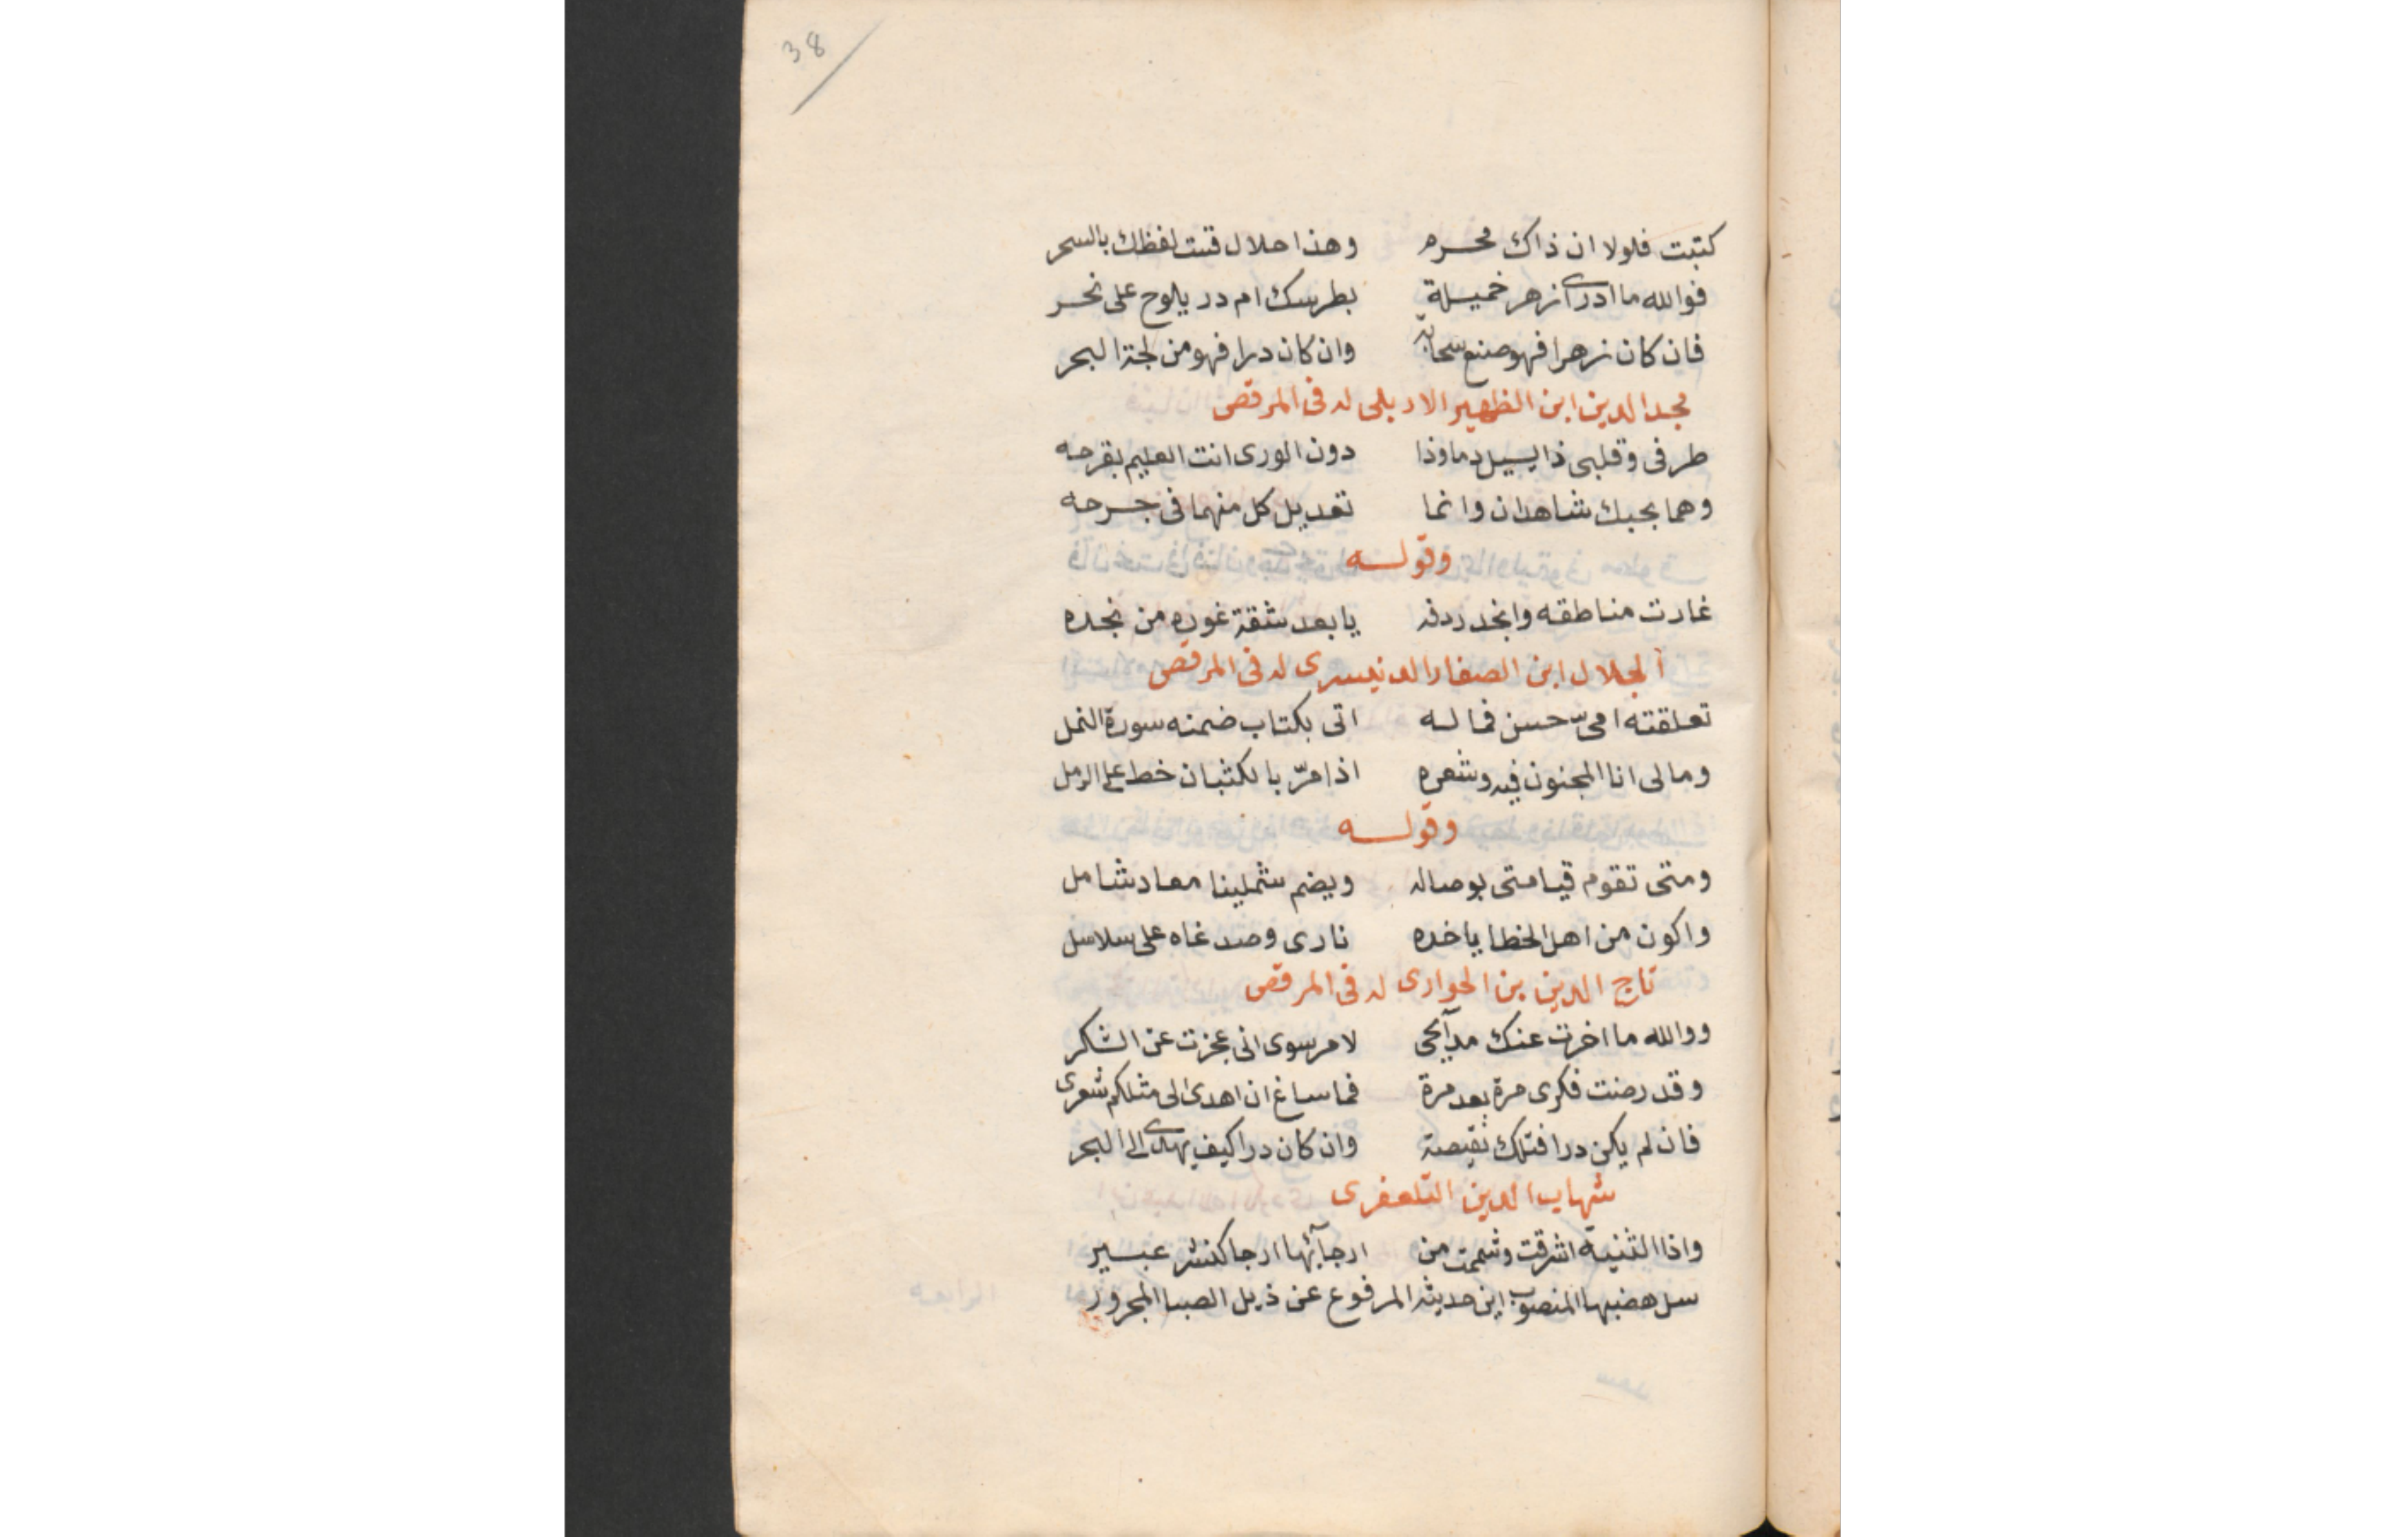 38
كتبت فلولا ان ذاك محرم وهذا حلال قست لفظك بالسحر
فوالله ما ادرى ازهر خميلة بطرسك ام در يلوح على نحر
فان كان زهرا فهو صنع سحابة وان كان درا فهو من لجة البحر
مجد الدين ابن الظهير الاربلى له فى المرقص
طرفى وقلبى ذا يسيل دما وذا دون الورى انت العليم بقرحه
وهما بحبك شاهدان وانما تعديل كل منهما فى جرحه
وقوله
غارت مناطقه وانجد ردفه يا بعد شقة غوره من نجده
الجلال ابن الصفار الدنيسرى له فى المرقص
تعلقته امىّ حسن فما له اتى بكتاب ضمنه سورة النمل
ومالى انا المجنون فيه وشعره اذا مرّ بالكثبان خط على الرمل
وقوله
ومتى تقوم قيامتى بوصاله ويضم شملينا معاد شامل
واكون من اهل الخطايا خده نارى وصدغاه على سلاسل
تاج الدين بن الحوارى له فى المرقص
ووالله ما اخرت عنك مدآيحى لامر سوى انى عجزت عن الشكر
وقد رضت فكرى مرة بعد مرة فما ساغ ان اهدى الى مثلكم شعرى
فان لم يكن درا فتلك نقيصة وان كان درا كيف يهدى الى البحر
شهاب الدين التلعفرى
واذا الثنية اشرقت وشممت من ارجآئها ارجا كنشر عبير
سل هضبها المنصوب اين حديثه المرفوع عن ذيل الصبا المجرور